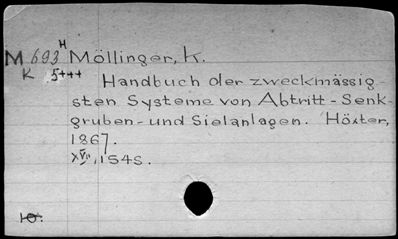 M 693 H Möllinger, K.
K 5+++ Handbuch der zweckmässig-
sten Systeme von Abtritt-Senk-
gruben-und Sielanlagen. Höxter,
1867.
XVII, 154S.
10.